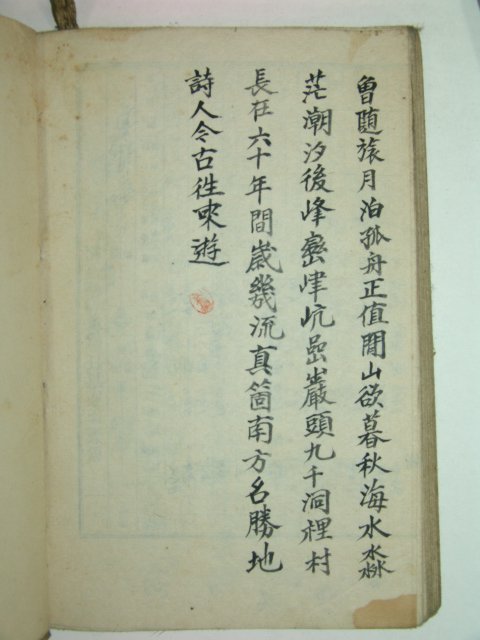 曾随旅月泊孤舟正值閒山欲暮秋海水淼
茫潮汐後峰巒峍屼嵒巖頭九千洞裡村
長在六十年間歲幾流真箇南方名勝地
詩人今古徃來遊